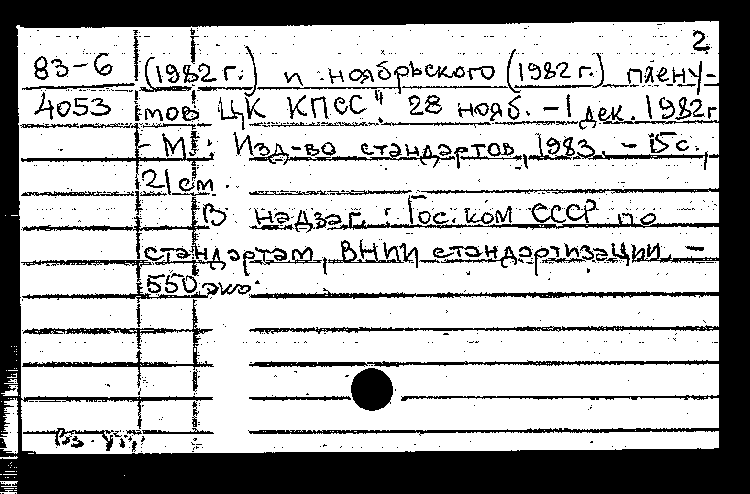 2
83-6 (1982 г.) и ноябрьского (1982 г.)плену-
4053 мов ЦК КПСС". 28 нояб. - 1 дек. 1982 г
- М.: Изд-во стандартов, 1983. - 15 с.,
21 см.
В надзаг.: Гос. ком СССР по
стандартам, ВНИИ стандартизации. -
550 экз.
Вз. ут.